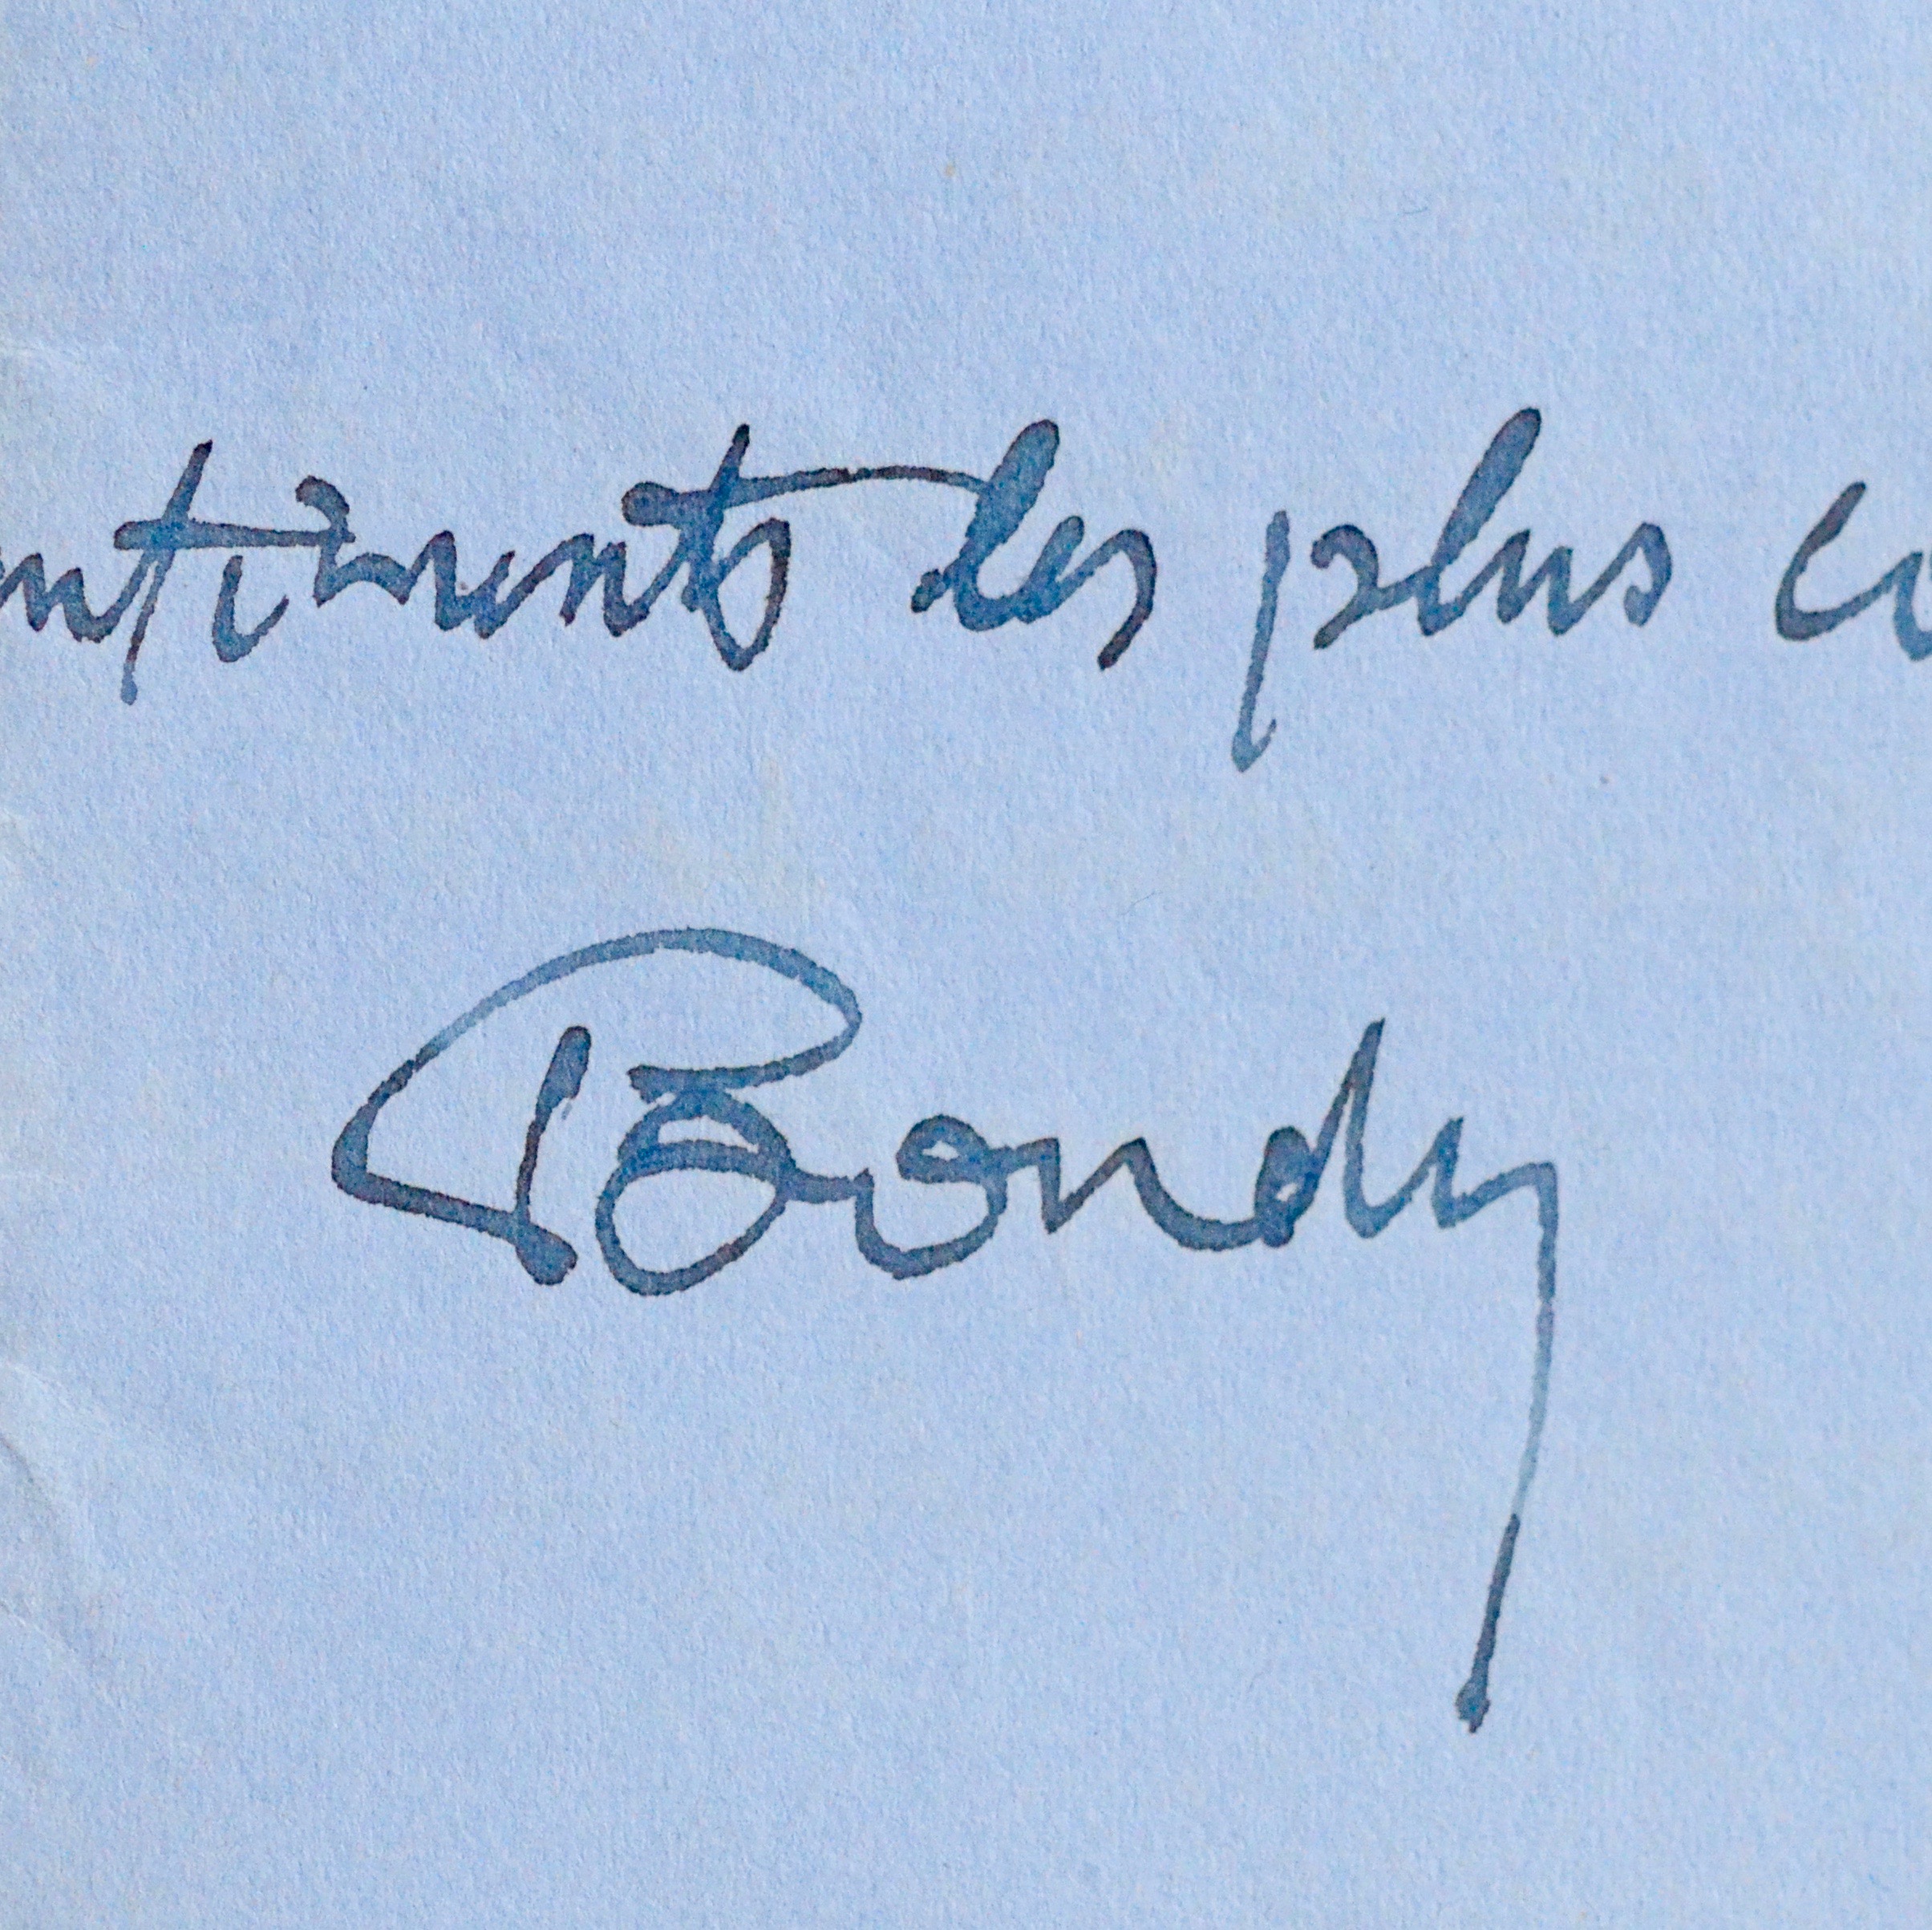 ntiments les plus co
Bondy